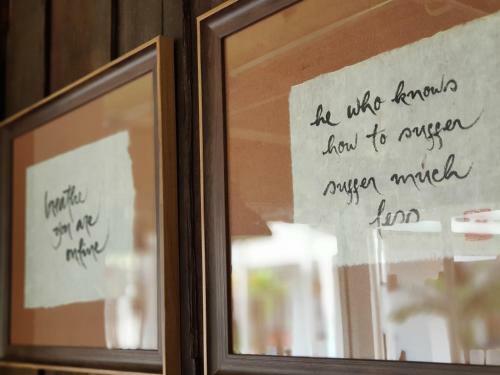 breathe
you are
online
he who knows
how to suffer
suffer much
less